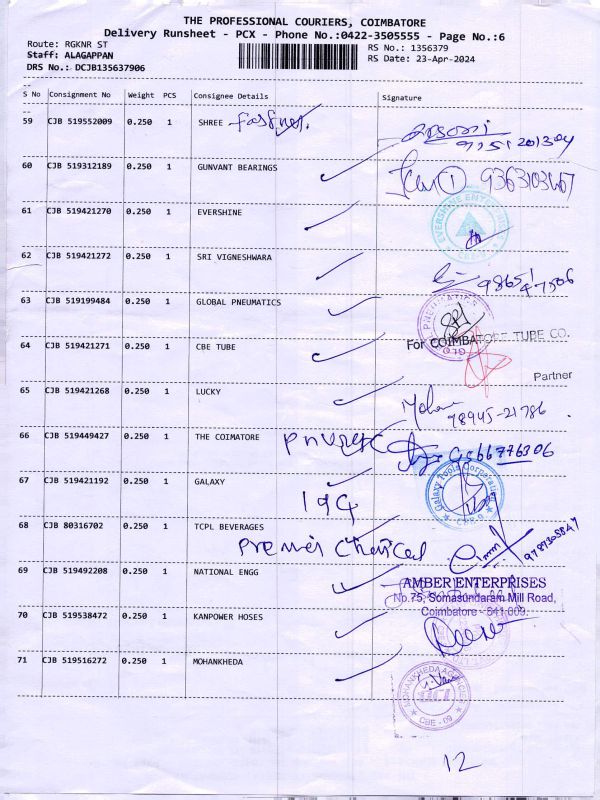 THE PROFESSIONAL COURIERS, COIMBATORE
Delivery Runsheet - PCX - Phone No.:0422-3505555 - Page No.:6
Route: RGKNR ST
Staff: ALAGAPPAN
DRS No.: DCJB135637906
RS No.: 1356379
RS Date: 23-Apr-2024
S No Consignment No Weight PCS Consignee Details Signature
59 CJB 519552009 0.250 1 SHREE
60 CJB 519312189 0.250 1 GUNVANT BEARINGS
61 CJB 519421270 0.250 1 EVERSHINE
EVERSHINE
62 CJB 519421272 0.250 1 SRI VIGNESHWARA
63 CJB 519199484 0.250 1 GLOBAL PNEUMATICS
64 CJB 519421271 0.250 1 CBE TUBE
For COIMBATORE TUBE CO.
Partner
65 CJB 519421268 0.250 1 LUCKY
98945-21786
66 CJB 519449427 0.250 1 THE COIMATORE
67 CJB 519421192 0.250 1 GALAXY
Galaxy Tools Corporation
194
68 CJB 80316702 0.250 1 TCPL BEVERAGES
Premier Chemical
69 CJB 519492208 0.250 1 NATIONAL ENGG
AMBER ENTERPRISES
No.75, Somasundaram Mill Road,
Coimbatore - 641 009.
70 CJB 519538472 0.250 1 KANPOWER HOSES
71 CJB 519516272 0.250 1 MOHANKHEDA
MOHANKHEDA AGENCIES
CBE - 09
12